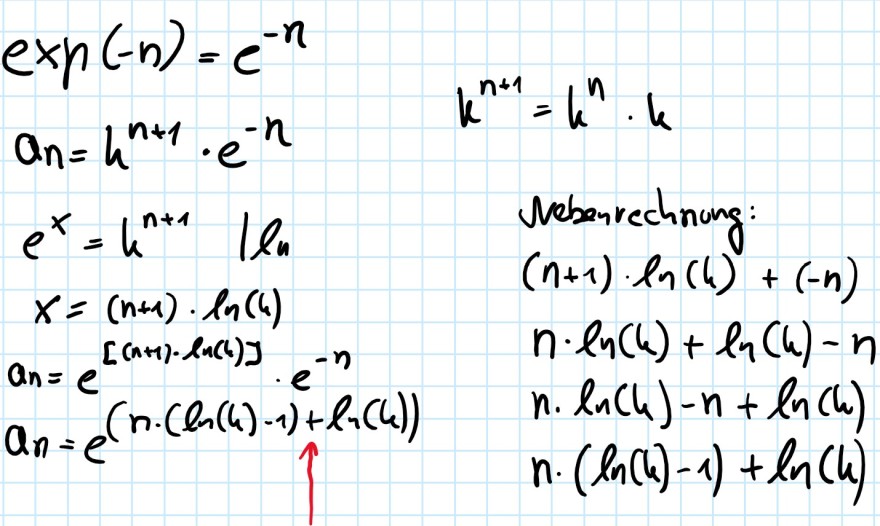 exp(-n) = e^{-n}
a_n = k^{n+1} · e^{-n}
e^x = k^{n+1} | ln
x = (n+1) · ln(k)
a_n = e^{[(n+1)·ln(k)]} · e^{-n}
a_n = e^{(n·(ln(k)-1)+ln(k))}
k^{n+1} = k^n · k
Nebenrechnung:
(n+1) · ln(k) + (-n)
n·ln(k) + ln(k) - n
n·ln(k) - n + ln(k)
n·(ln(k)-1) + ln(k)